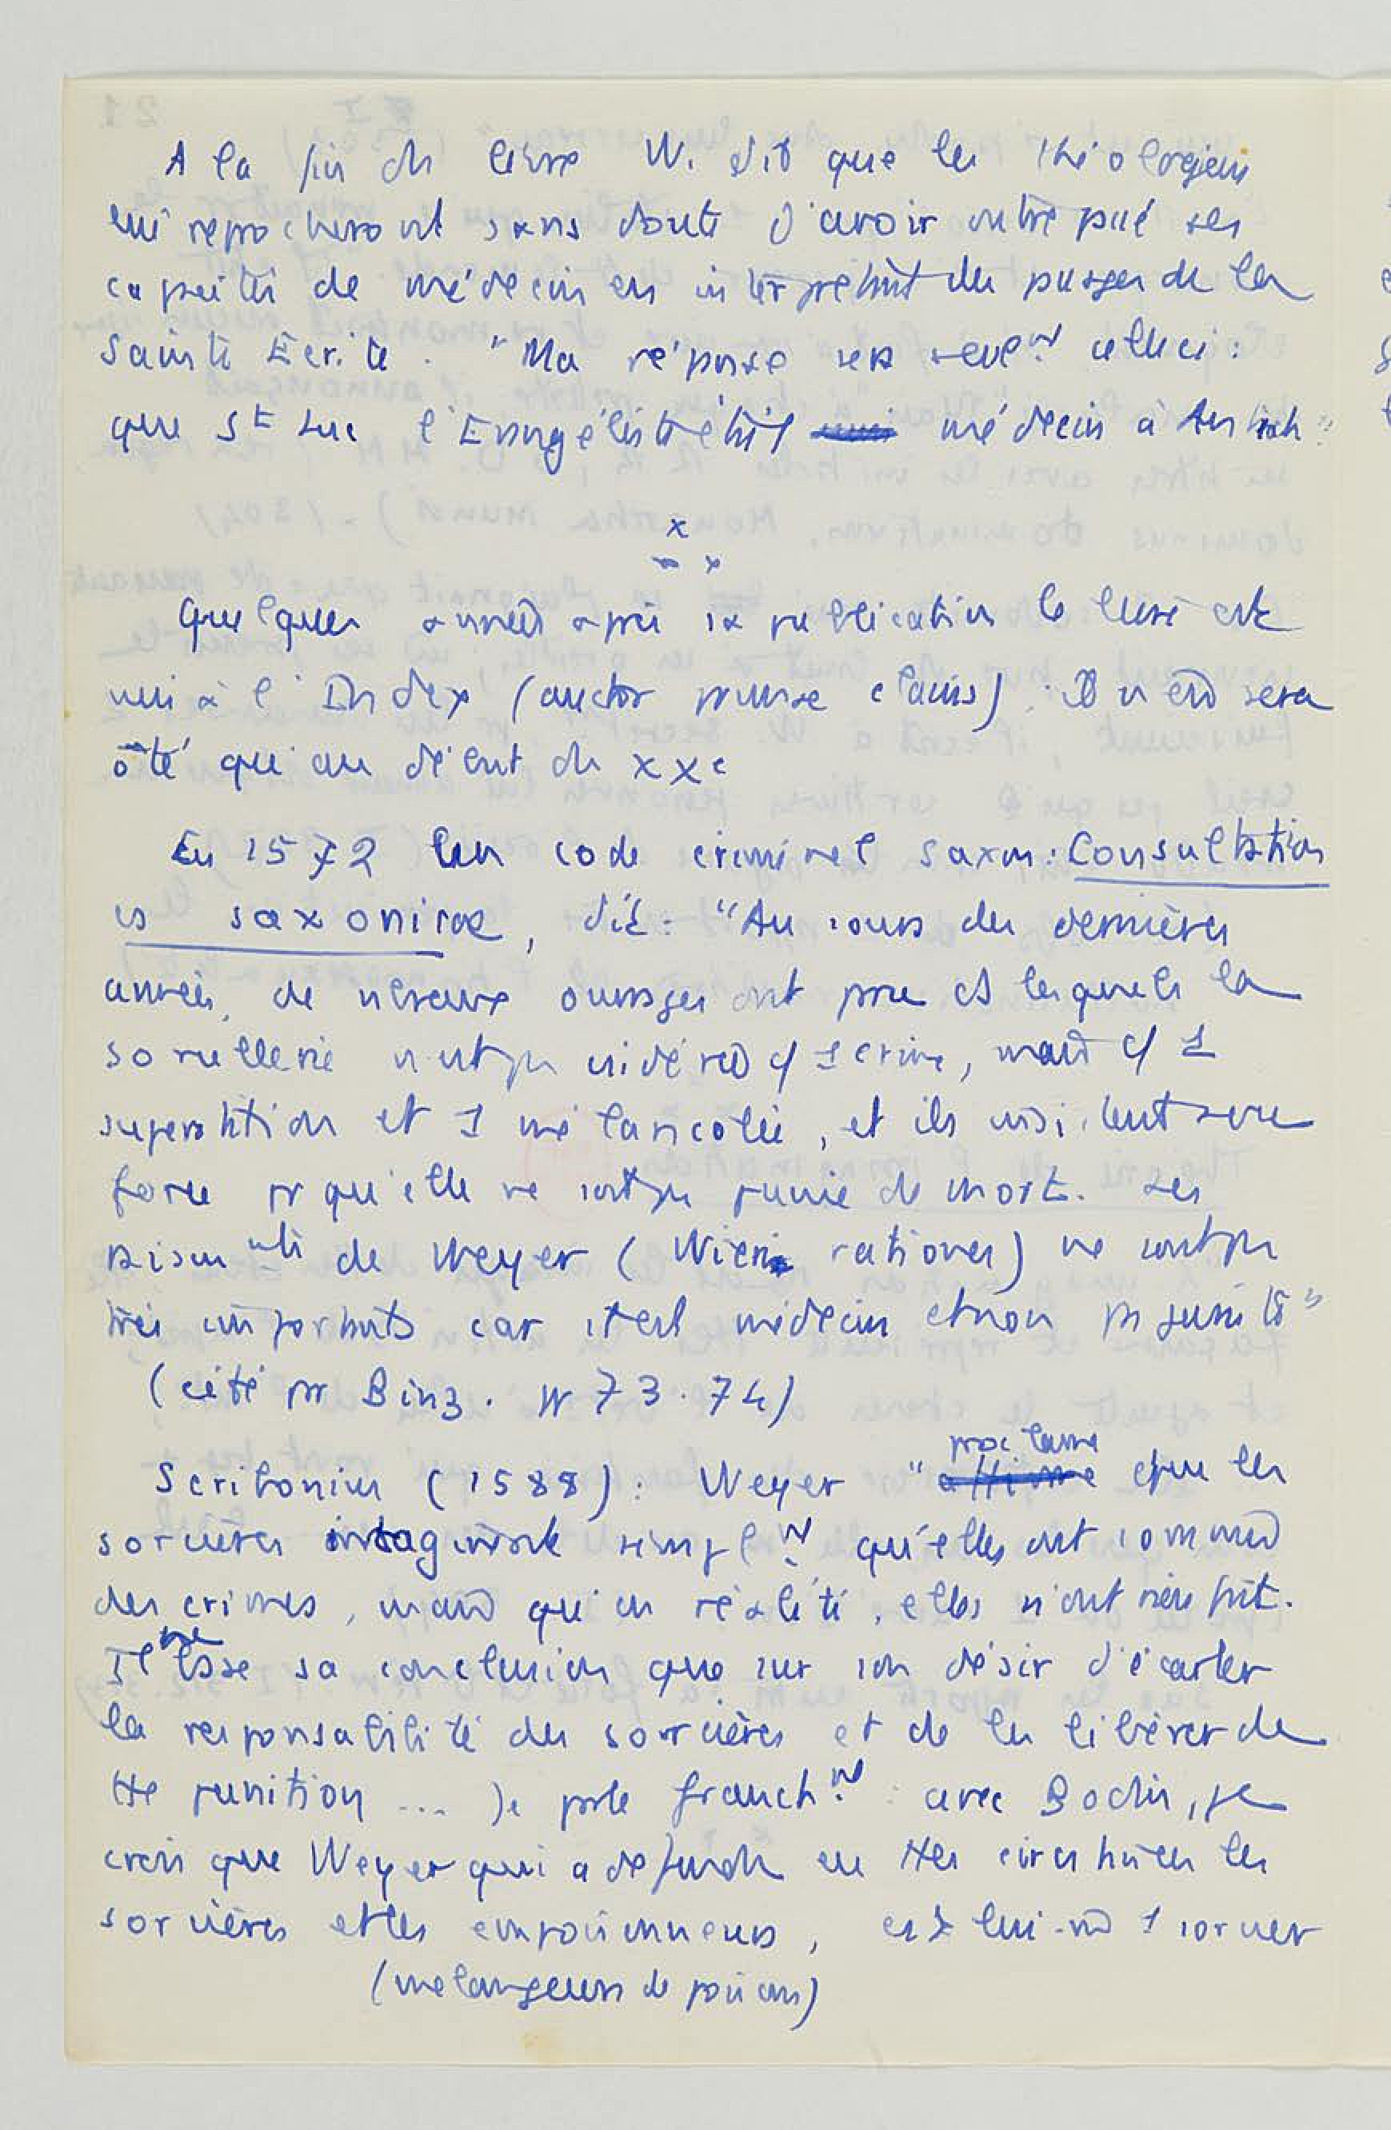 A la fin du livre W. dit que les théologiens
lui reprocheront sans doute d'avoir outrepassé ses
capacités de médecin en interprétant des passages de la
Sainte Ecrite. "Ma réponse sera seulent celle-ci :
que St Luc l'Evangéliste était médecin à Antioch"
x
x x
Quelques années après sa publication le livre est
mis à l'Index (auctor primae classis). Il n'en sera
ôté qu'au début du XXe
En 1572 le code criminel saxon : Consultation
es saxonicae, dit : "Au cours des dernières
années, de nbreux ouvrages ont paru ds lesquels la
sorcellerie n'est pas cidérée c/ 1 crime, mais c/ 1
superstition et 1 mélancolie, et ils insistent avec
force pr qu'elle ne soit pas punie de mort. Les
raisonnts de Weyer (Wieri rationes) ne sont pas
très importants car il est médecin et non pas juriste"
(cité par Binz. W 73.74)
Scribonius (1588) : Weyer "proclame que les
sorcières imaginent simplent qu'elles ont commis
des crimes, mais qu'en réalité, elles n'ont rien fait.
Il ne base sa conclusion que sur son désir d'écarter
la responsabilité des sorcières et de les libérer de
tte punition ... Je parle franchnt : avec Bodin, je
crois que Weyer qui a défendu en ttes circstances les
sorcières et les empoisonneurs, est lui-m 1 sorcier
(mélangeurs de poisons)